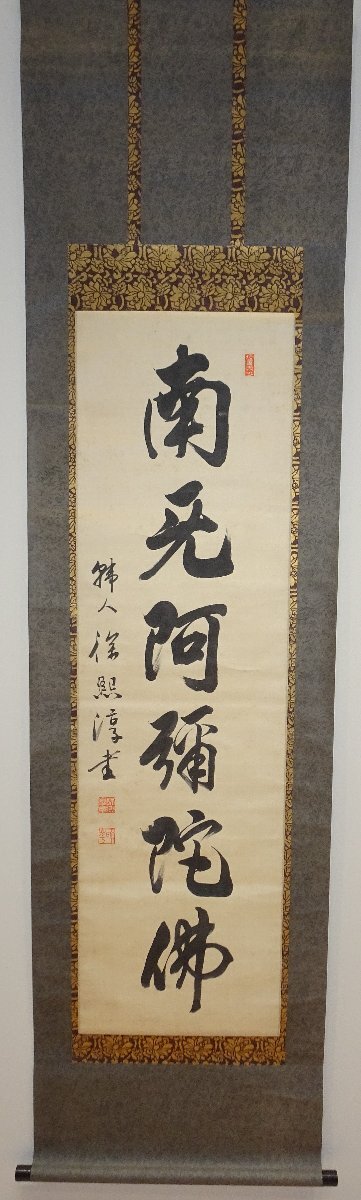 南无阿彌陀佛
韓人徐熙淳書